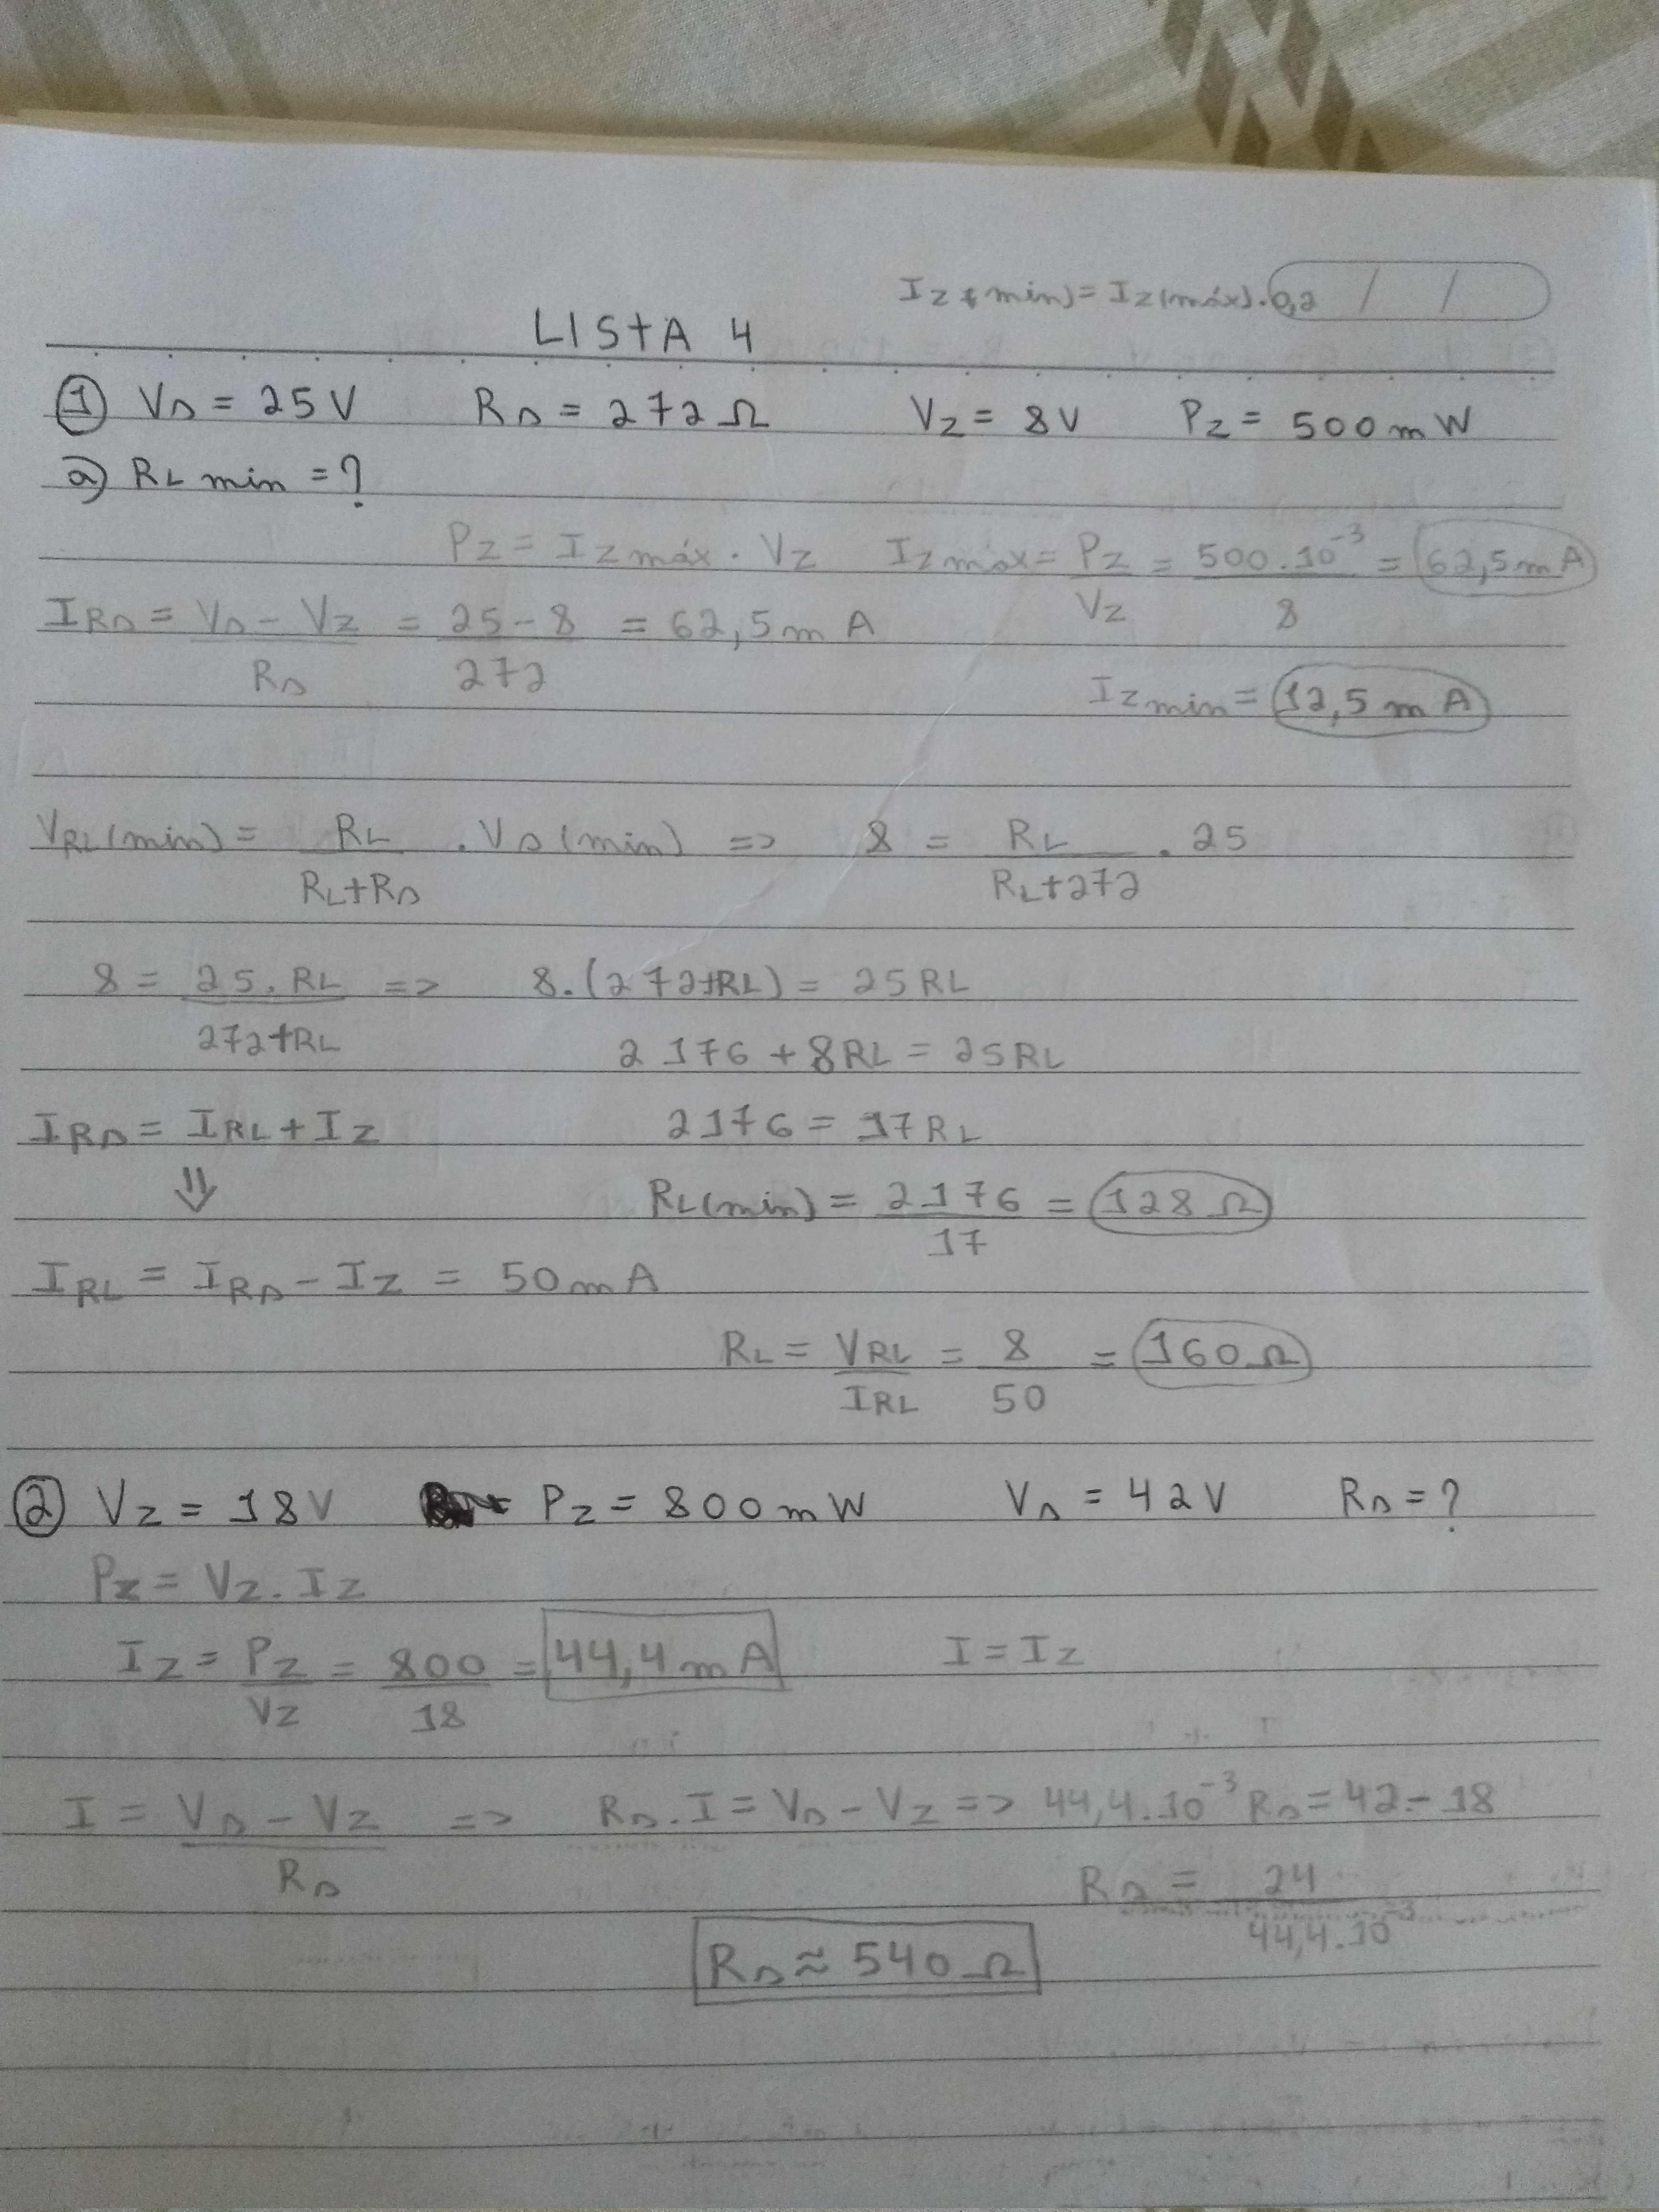 Iz(min) = Iz(máx).0,2 / /
LISTA 4
① VS = 25V RS = 272Ω VZ = 8V PZ = 500mW
a) RL min = ?
PZ = IZ máx . VZ IZ máx = PZ/VZ = 500.10⁻³/8 = 62,5mA
IRS = VS - VZ/RS = 25-8/272 = 62,5mA
IZ min = 12,5mA
VRL(min) = RL/RL+RS . VS(min) => 8 = RL/RL+272 . 25
8 = 25.RL/272+RL => 8.(272+RL) = 25RL
2176 + 8RL = 25RL
IRS = IRL + IZ 2176 = 17RL
⇓
RL(min) = 2176/17 = 128Ω
IRL = IRS - IZ = 50mA
RL = VRL/IRL = 8/50 = 160Ω
② VZ = 18V PZ = 800mW VS = 42V RS = ?
PZ = VZ.IZ
IZ = PZ/VZ = 800/18 = 44,4mA I = IZ
I = VS - VZ/RS => RS.I = VS - VZ => 44,4.10⁻³RS = 42 - 18
RS = 24/44,4.10⁻³
RS ≈ 540Ω